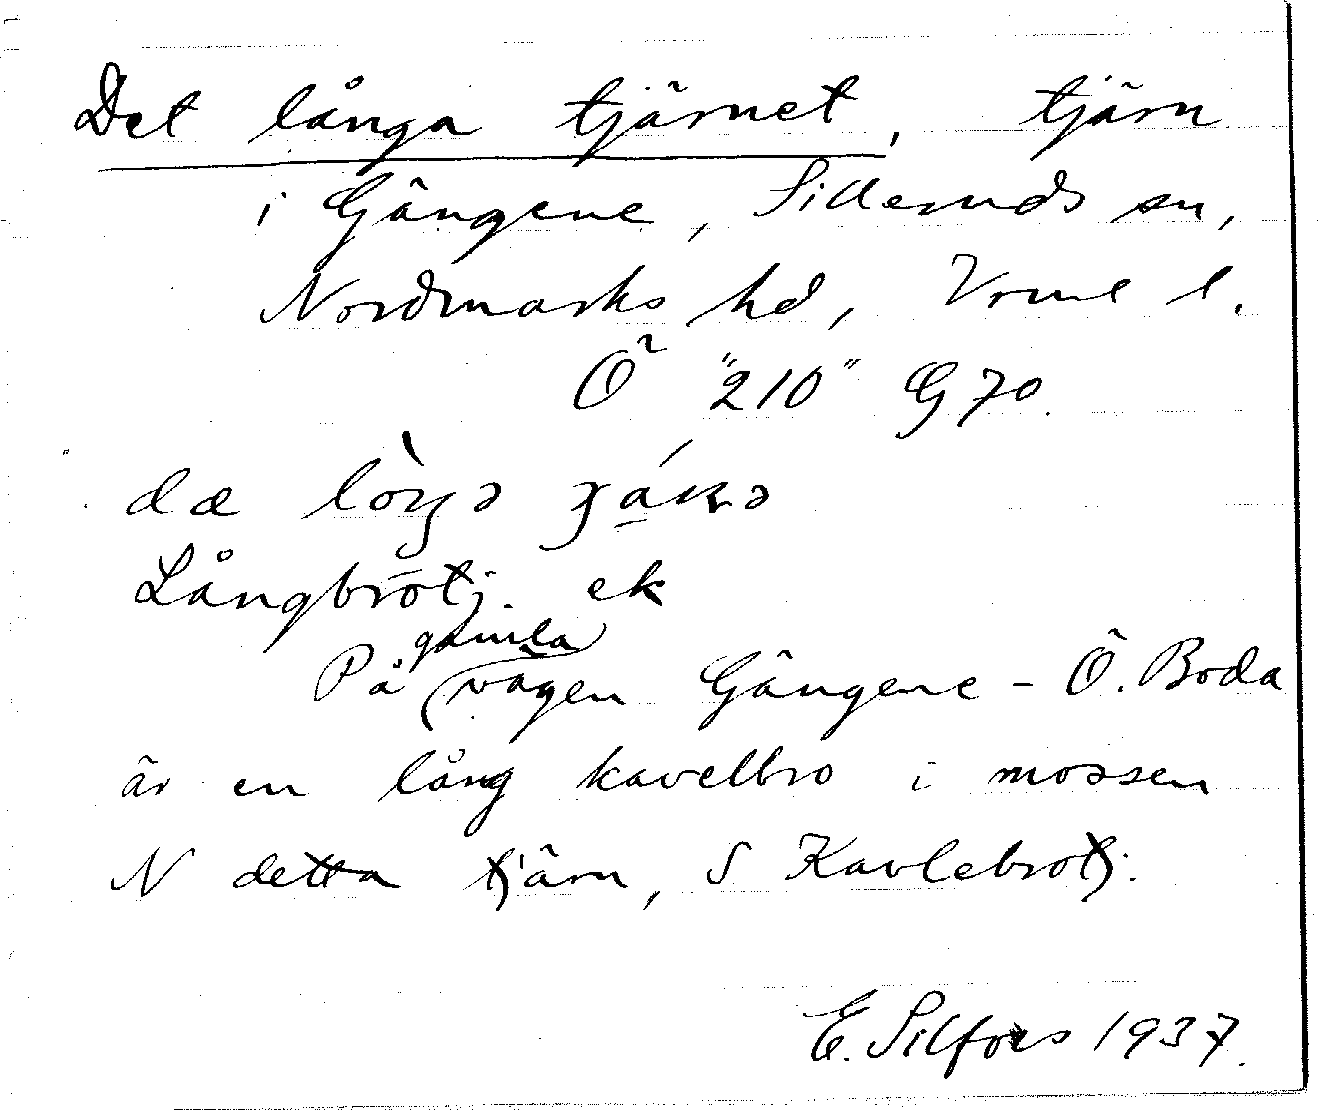 Det långa tjärnet, tjärn
i Gängene, Silleruds sn,
Nordmarks hd, Vrml l.
Ö "210" G 70.
dæ
Långbrotj. ek
På gamla vägen Gängene - Ö. Boda
är en lång kavelbro i mossen
N detta tjärn, S Kavlebrotj.
E. Silfors 1937.